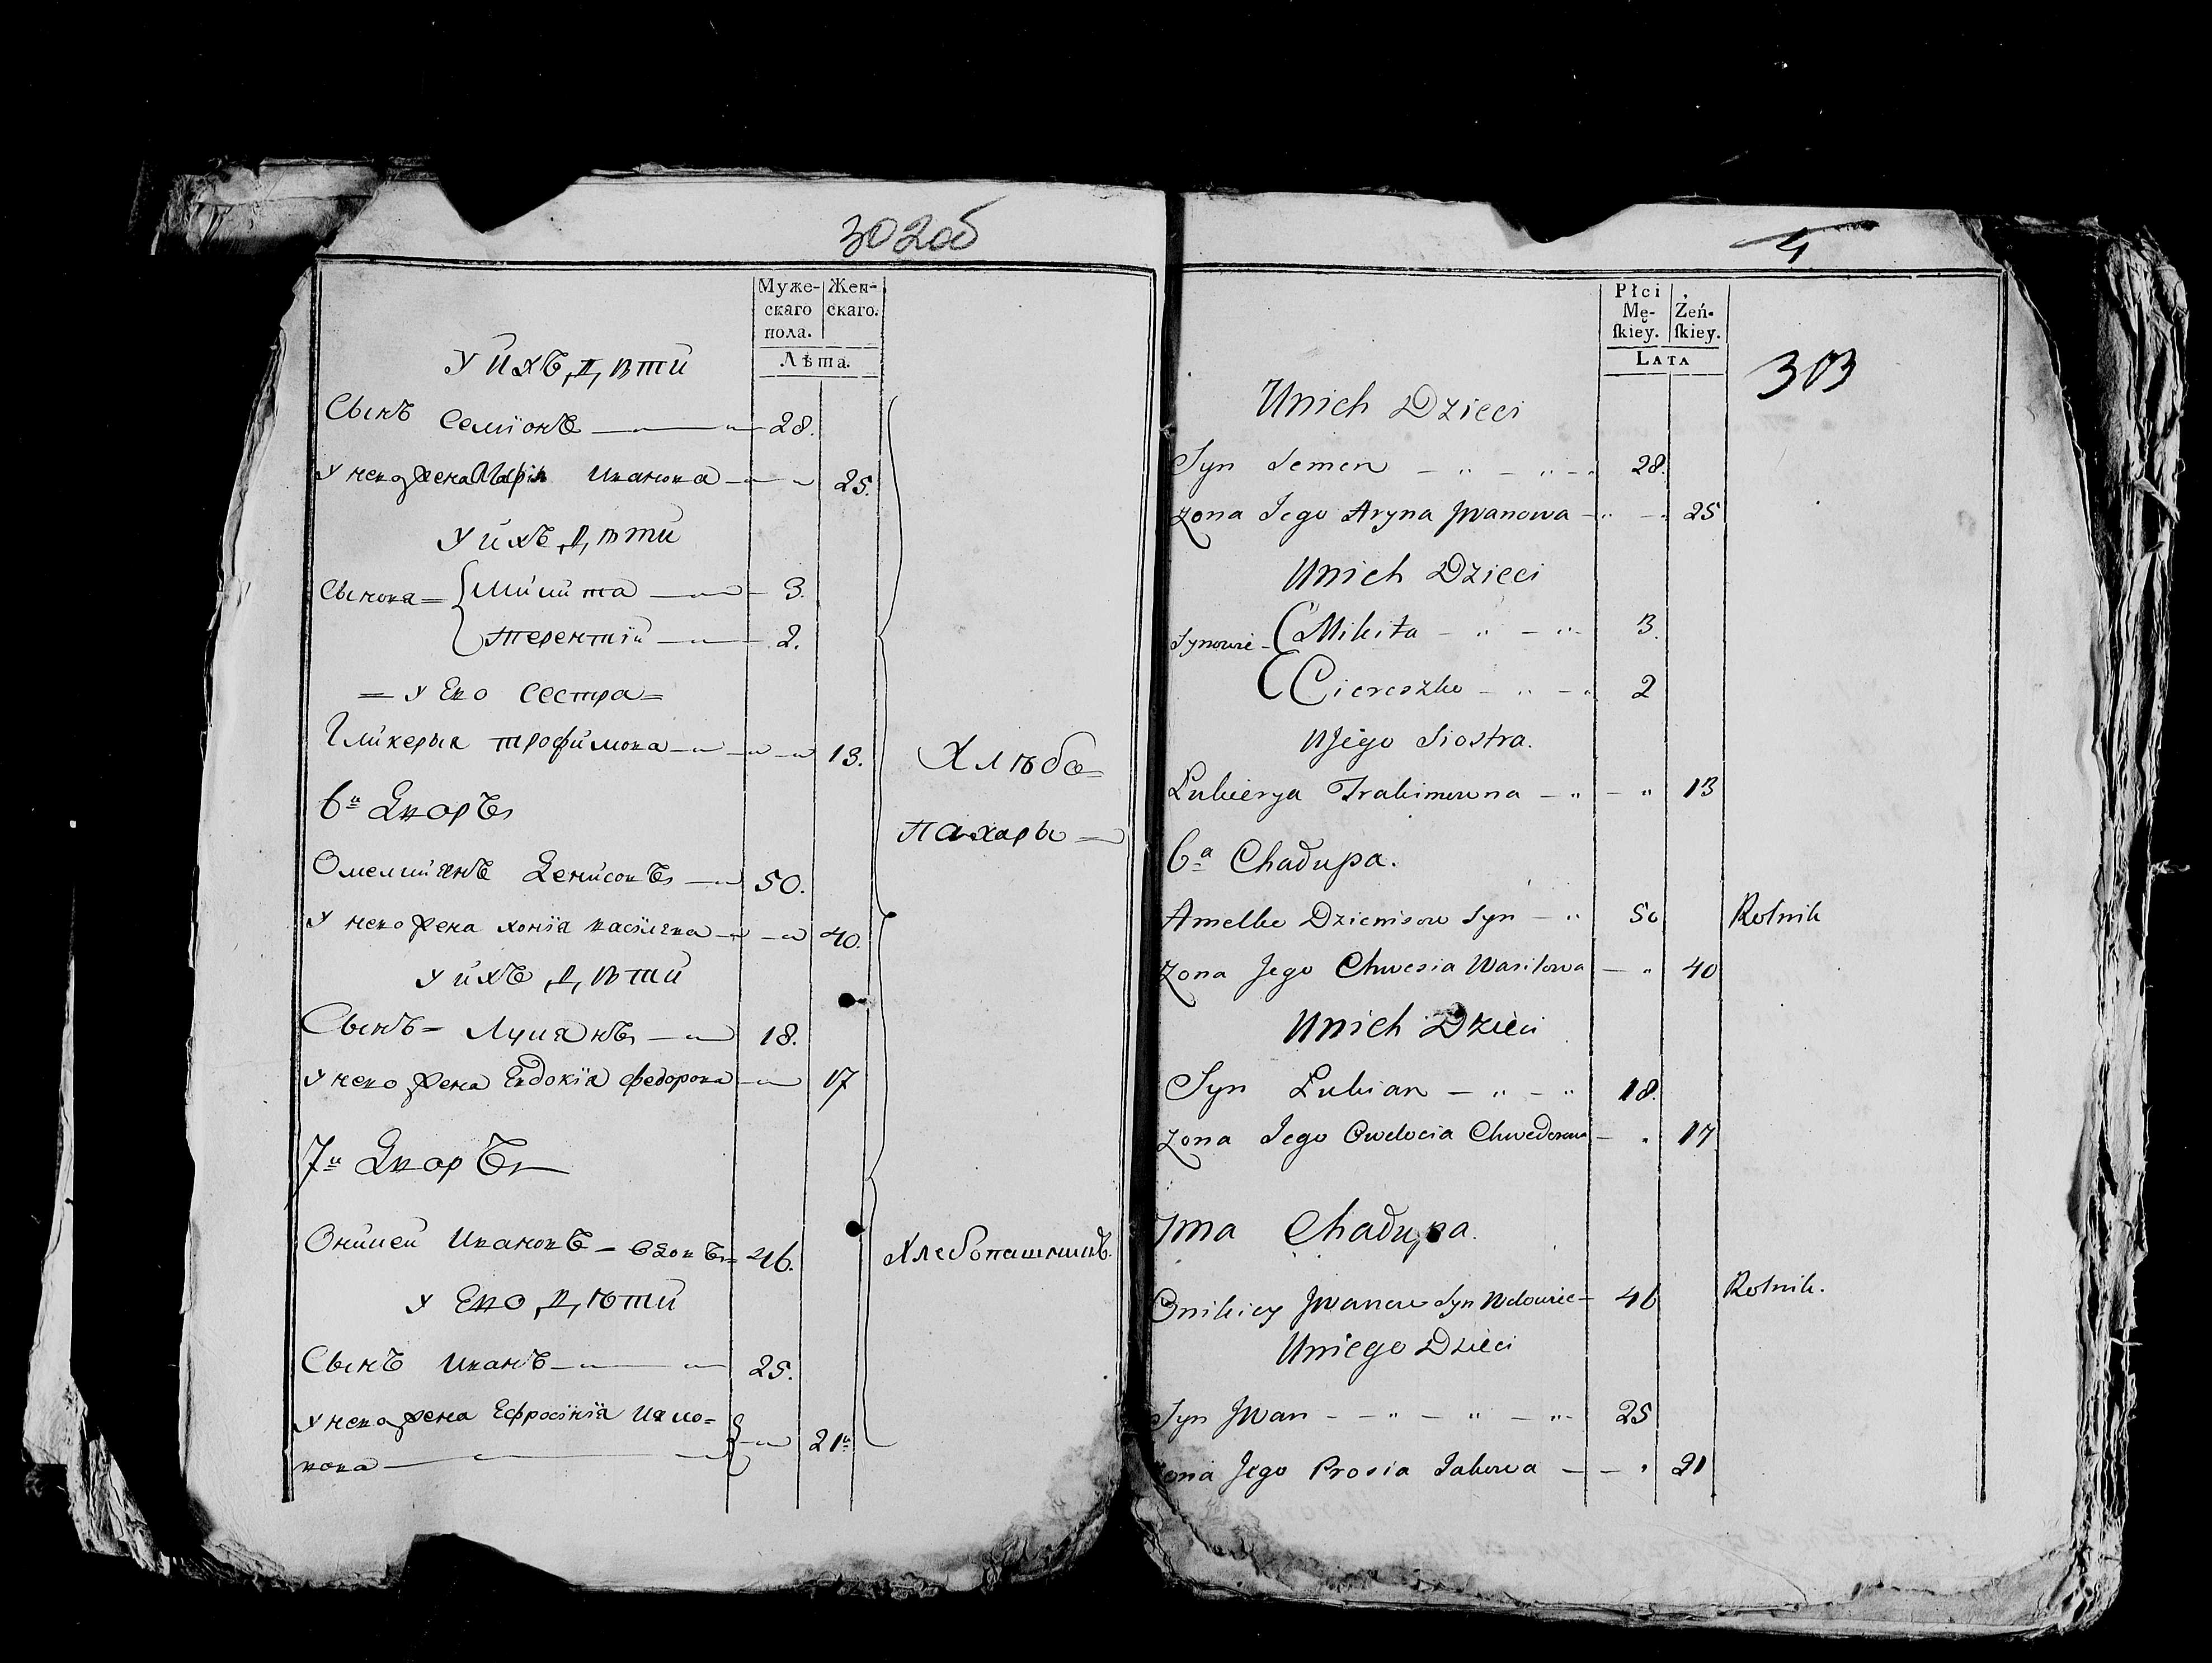 302об
Муже-
скаго
пола.
Жен-
скаго.
Лѣта.
У ихъ дѣти
Сынъ Семіонъ 28.
У него жена Марія Иванова 25.
У ихъ дѣти
Сынова = Микита 3.
Терентій 2.
= У Его сестра =
Гликерыя Трофимова 13.
6й Дворъ
Омелиянъ Денисовъ 50.
У него жена хонія василева 40.
У ихъ дѣти
Сынъ = Лукианъ 18.
У него жена Евдокія федорова 17
7й Дворъ
Оникей Ивановъ – вдовъ = 46.
У Его дѣти
Сынъ Иванъ 25.
У него жена Ефросінія Иако=
вова 21
Хлѣбо=
пахары
Хлебопашникъ.
4
303
Płci
Mę-
ſkiey.
Żeń-
ſkiey.
LATA
Unich Dzieci
Syn Semen – „ – „ – „ 28.
Zona Jego Aryna Jwanowa – „ – „ 25
Unich Dzieci
Synowie – Mikita – „ – „ – 3.
Ciereszko – „ – „ 2
Ujego Siostra.
Łukierya Trakimowna – „ – „ 13
6a Chadupa.
Amelko Dzienisow Syn – „ 50 Rolnik
Zona Jego Chwesia Wasilowa – „ 40
Unich Dzieci
Syn Łukian – „ – „ 18.
Zona Jego Owdocia Chwedorowa – „ 17
7ma Chadupa.
Onikiey Jwanow Syn Wdowiec – 46 Rolnik.
Uniego Dzieci
Syn Jwan – – „ – „ – „ – 25
Zona Jego Prosia Jakowa – – „ 21